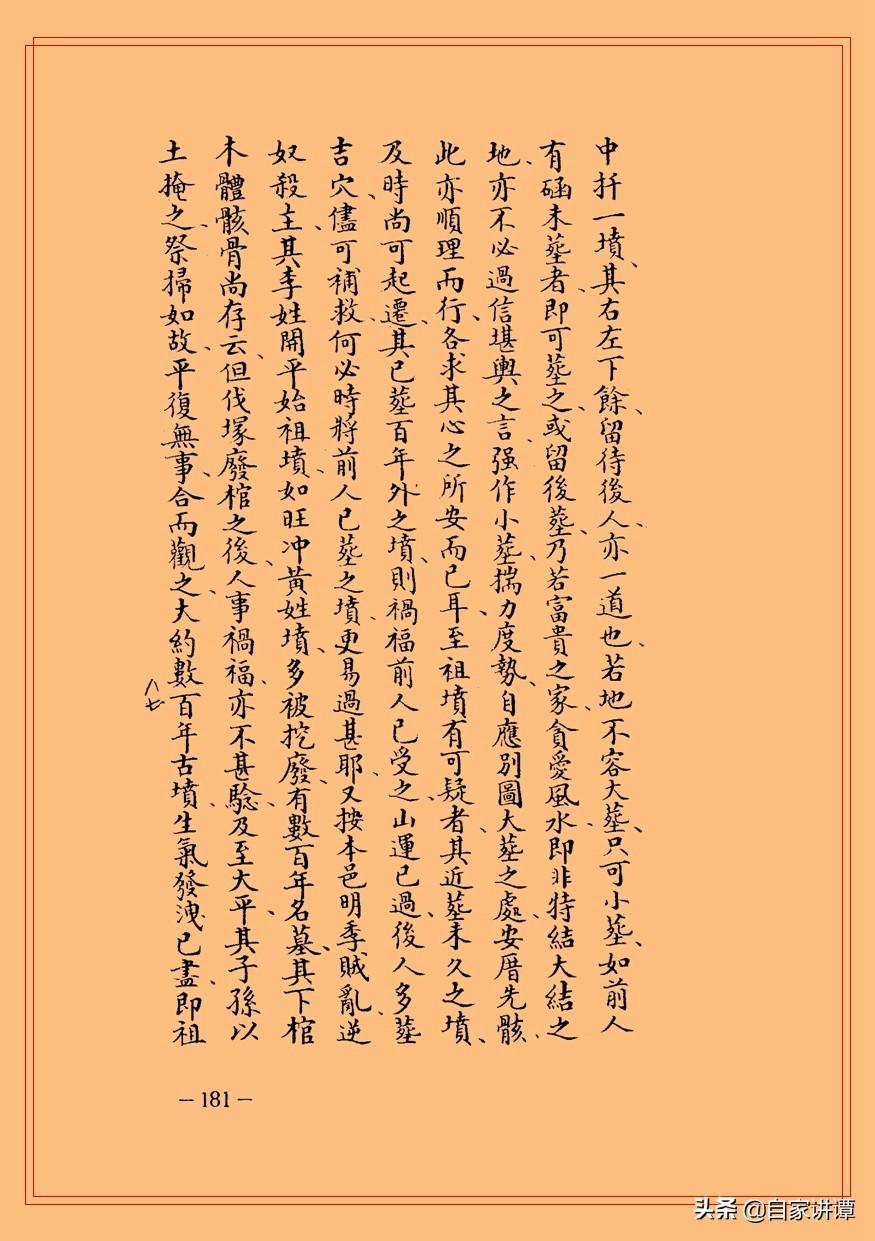 中扦一墳、其右左下餘、留待後人、亦一道也、若地不容大塟、只可小塟、如前人
有凾未塟者、即可塟之、或留後塟、乃若富貴之家、貪愛風水、即非特結大結之
地、亦不必過信堪輿之言、强作小塟、揣力度勢、自應別圖大塟之處、安厝先骸、
此亦順理而行、各求其心之所安而已耳、至祖墳有可疑者、其近塟未久之墳、
及時尚可起遷、其已塟百年外之墳、則禍福前人已受之、山運已過、後人多塟
吉穴、儘可補救、何必時將前人已塟之墳、更易過甚耶、又按本邑明季賊亂、逆
奴殺主、其李姓開平始祖墳、如旺冲黃姓墳、多被挖廢、有數百年名墓、其下棺
木體骸骨尚存云、但伐塚廢棺之後、人事禍福、亦不甚騐、及至大平、其子孫以
土掩之、祭掃如故、平復無事、合而觀之、大約數百年古墳、生氣發洩已盡、即祖
八七
— 181 —
头条 @自家讲谭